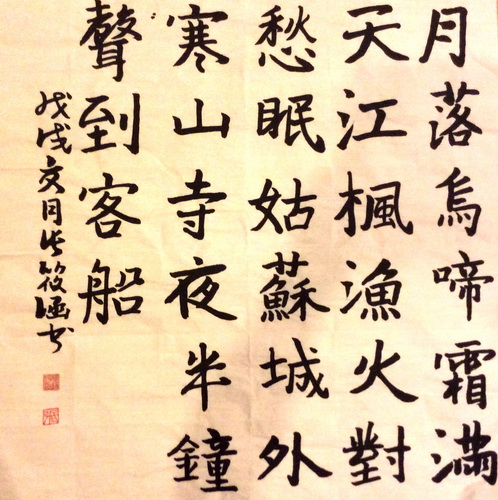 月落烏啼霜滿
天江楓漁火對
愁眠姑蘇城外
寒山寺夜半鐘
聲到客船
戊戌文月 筱涵书